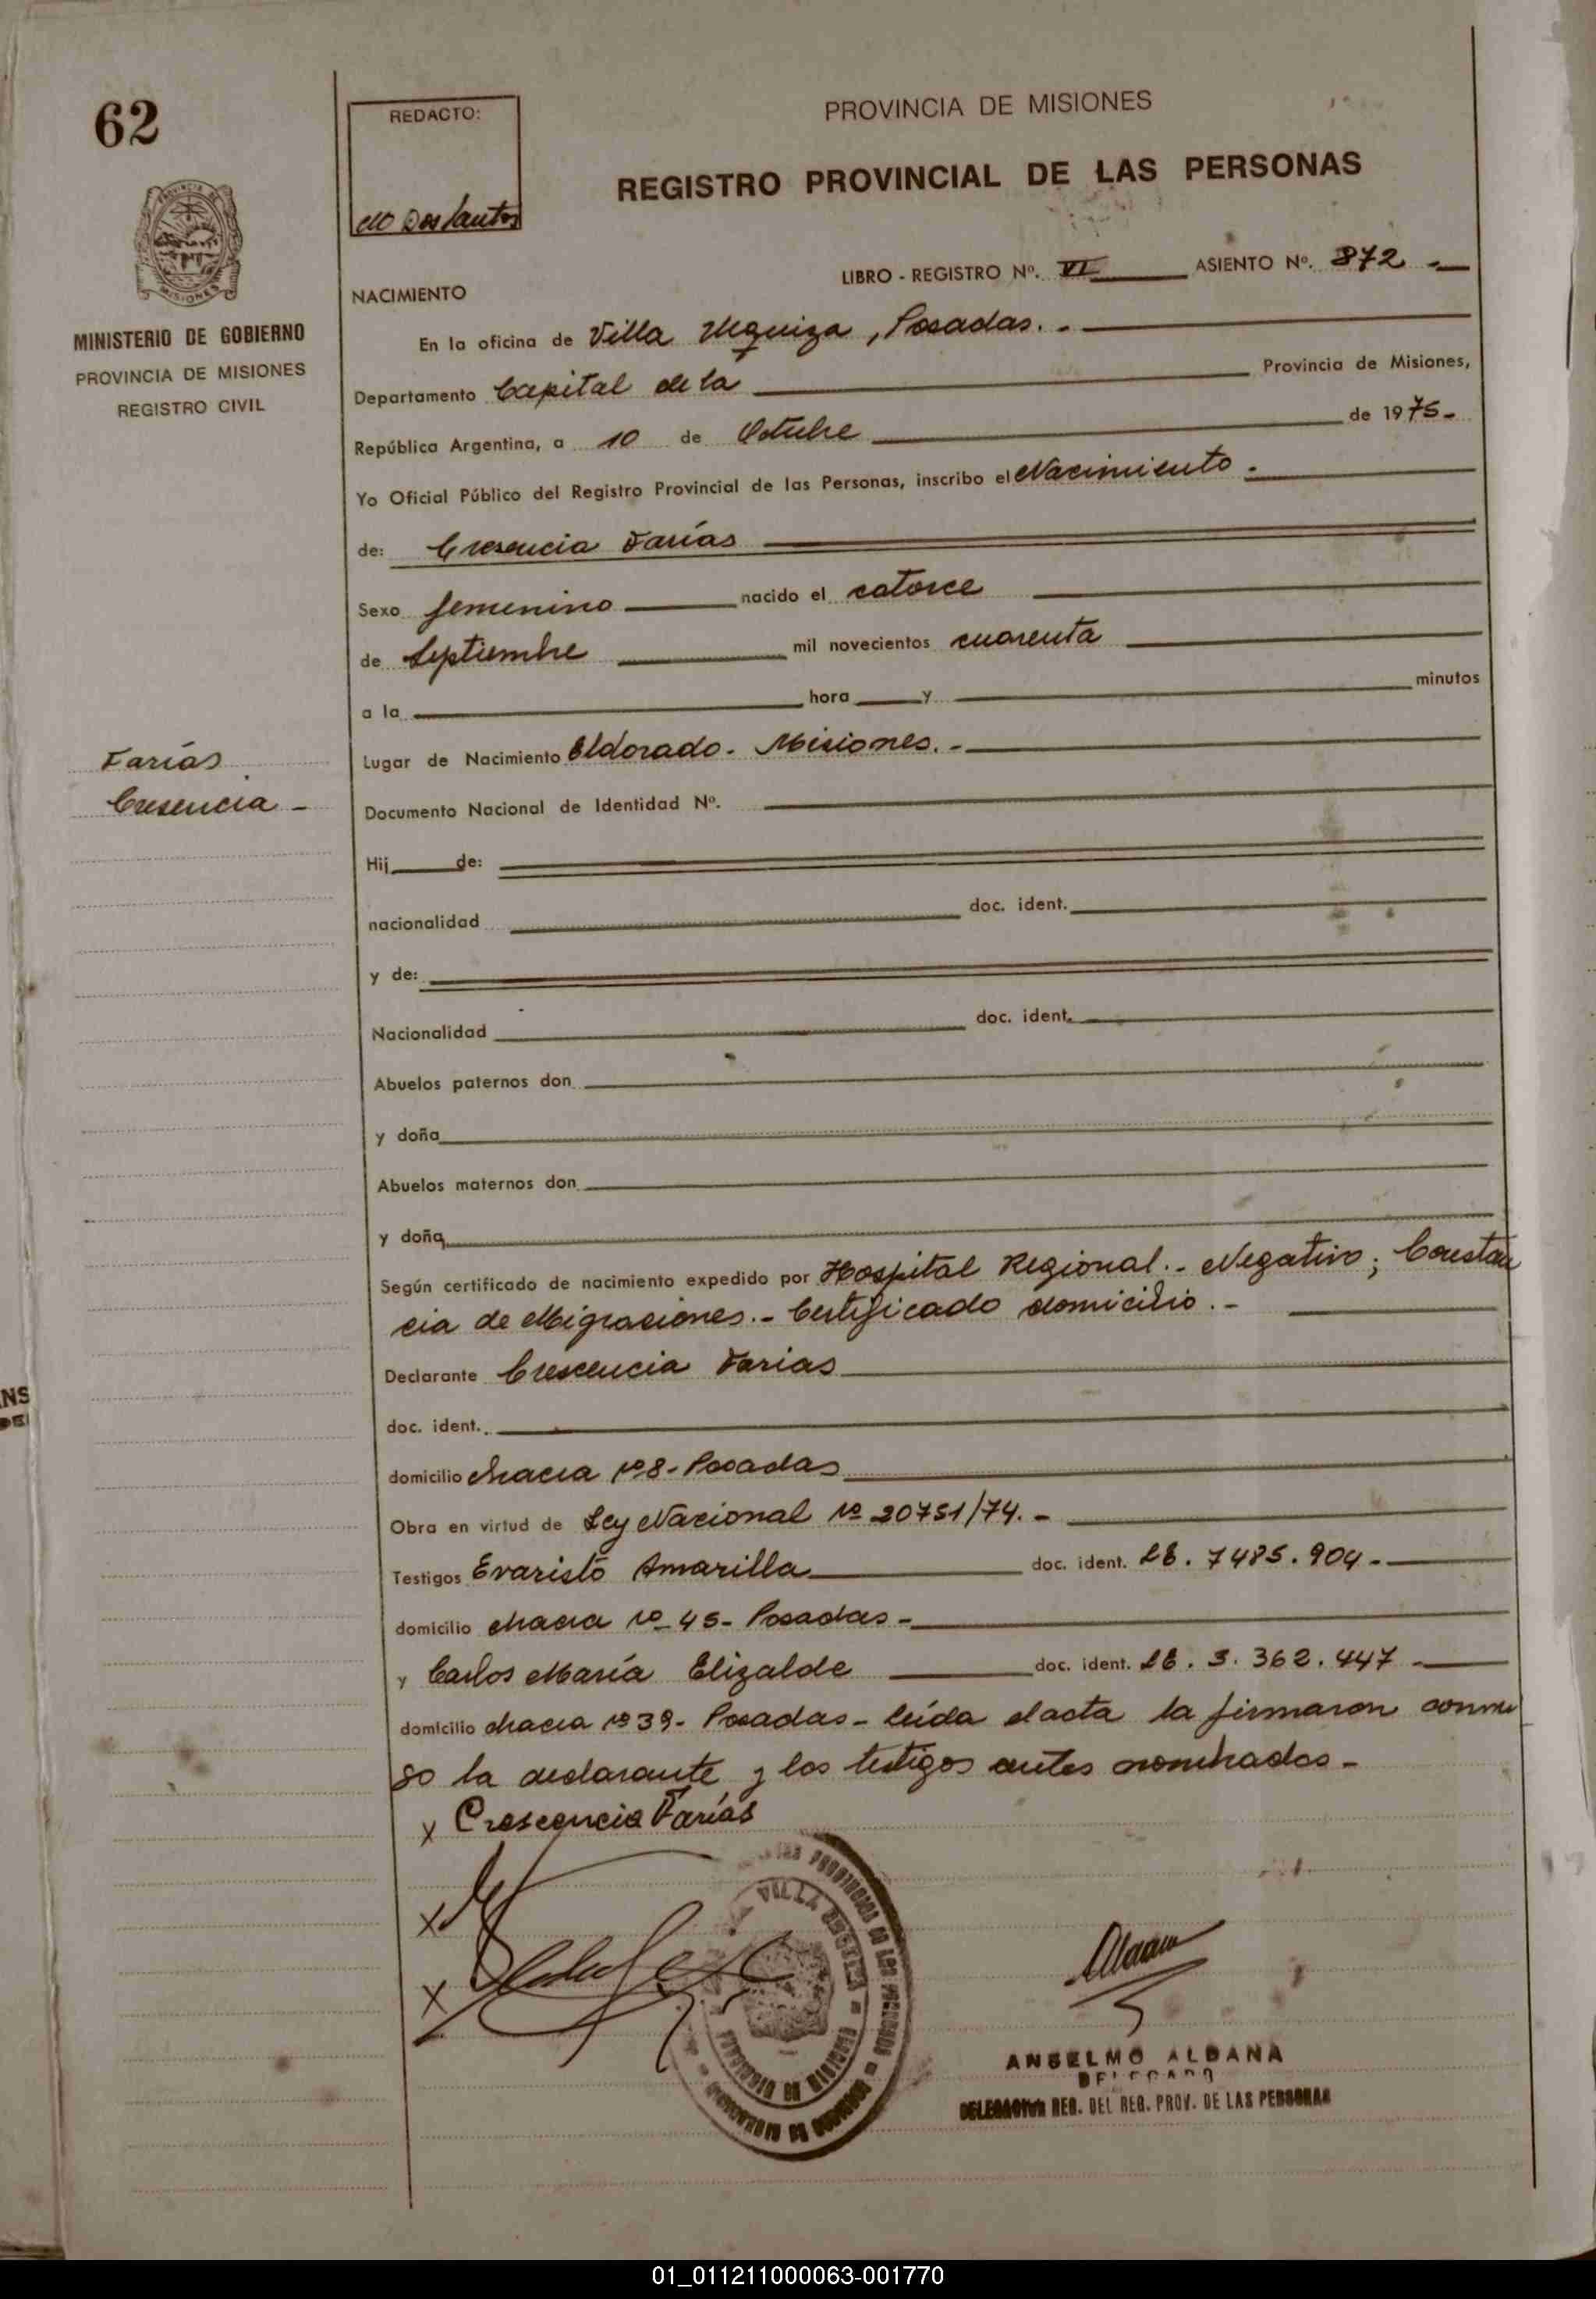 62
REDACTO:
M Dos Santos
PROVINCIA DE MISIONES
REGISTRO PROVINCIAL DE LAS PERSONAS
PROVINCIA DE
MISIONES
MINISTERIO DE GOBIERNO
PROVINCIA DE MISIONES
REGISTRO CIVIL
LIBRO - REGISTRO Nº. VI ASIENTO Nº. 872 -
NACIMIENTO
En la oficina de Villa Urquiza, Posadas. -
Departamento Capital de la Provincia de Misiones,
República Argentina, a 10 de Octubre de 1975-
Yo Oficial Público del Registro Provincial de las Personas, inscribo el Nacimiento -
de: Cresencia Farías
Sexo femenino nacido el catorce
de Septiembre mil novecientos cuarenta
a la hora y minutos
Lugar de Nacimiento Eldorado - Misiones. -
Farías
Cresencia -
Documento Nacional de Identidad Nº.
Hij de:
nacionalidad doc. ident.
y de:
Nacionalidad doc. ident.
Abuelos paternos don
y doña
Abuelos maternos don
y doña
Según certificado de nacimiento expedido por Hospital Regional. - Negativo; Constan
cia de Migraciones. - Certificado domicilio. -
Declarante Crescencia Farias
doc. ident.
domicilio chacra Nº 8 - Posadas
Obra en virtud de Ley Nacional Nº 20751/74. -
Testigos Evaristo Amarilla doc. ident. LE. 7485.904 -
domicilio chacra Nº 45 - Posadas -
y Carlos María Elizalde doc. ident. LE. 3.362.447 -
domicilio chacra Nº 39 - Posadas - leída el acta la firmaron conmi
go la declarante y los testigos antes nombrados -
x Crescencia Farías
x
x
VILLA URQUIZA
PROVINCIA DE MISIONES
ANSELMO ALDANA
DELEGADO
DELEGACION REG. DEL REG. PROV. DE LAS PERSONAS
01_011211000063-001770